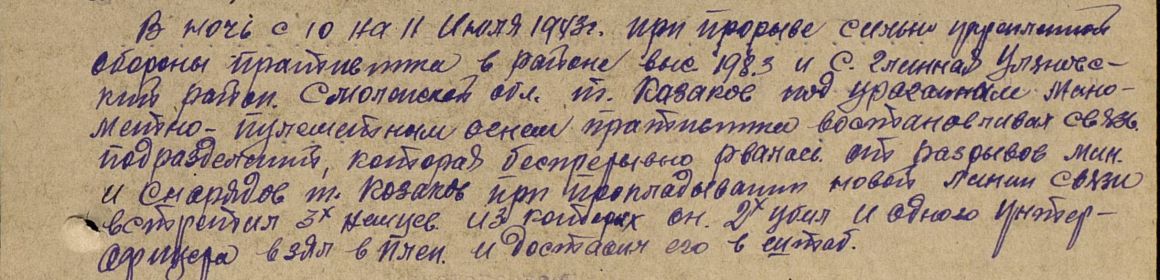 В ночь с 10 на 11 Июля 1943г. при прорыве сильно укрепленной
обороны пративника в районе выс. 198.3 и С. Глинная Ульяновс-
кий район. Смоленской обл. т. Казаков под ураганным мино-
метно-пулеметным огнем пративника востановливал связь.
подразделений, которая беспрерывно рвалась от разрывов мин.
и снарядов т. Козаков при прокладывании новой линии связи
встретил 3х немцев из которых он. 2х убил и одного унтер-
офицера взял в плен и доставил его в штаб.